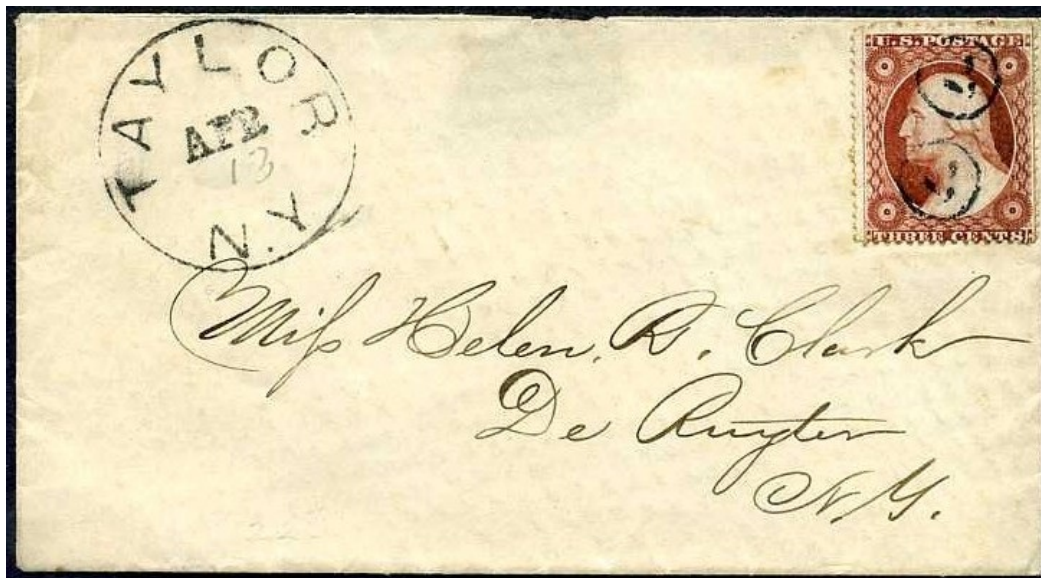 TAYLOR
APR
13
N.Y.
U.S. POSTAGE
THREE CENTS
Miſs Helen. R. Clark
De Ruyter
N.Y.